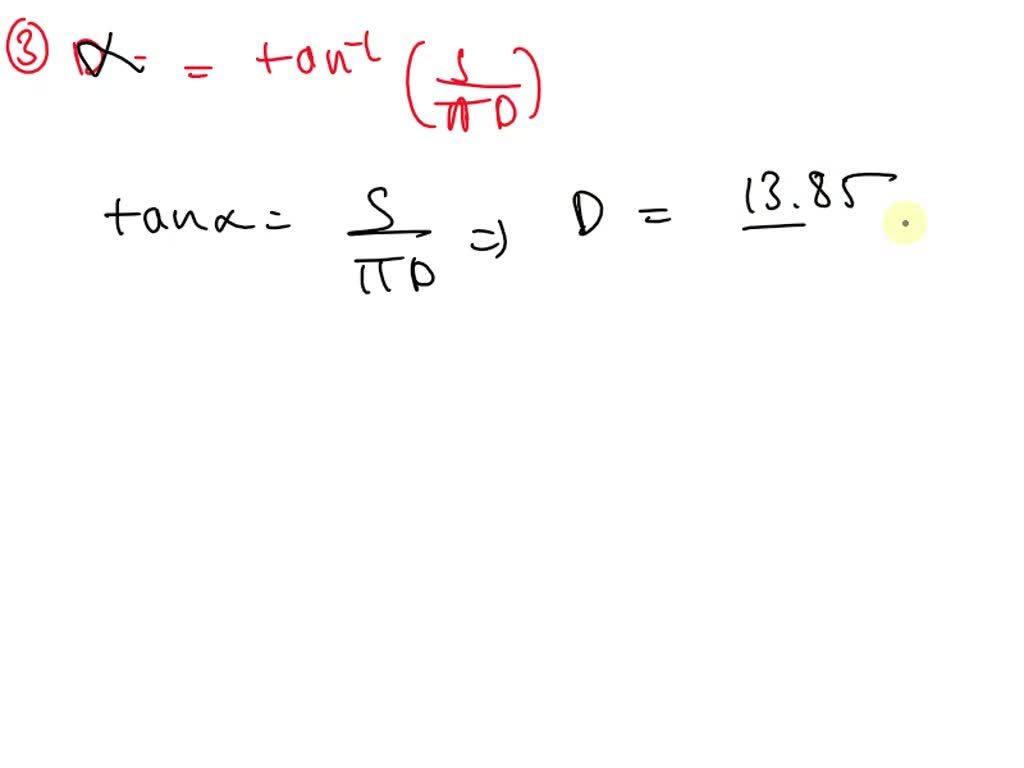 ③ α = tan⁻¹ (S/πD)
tanα = S/πD ⇒ D = 13.85